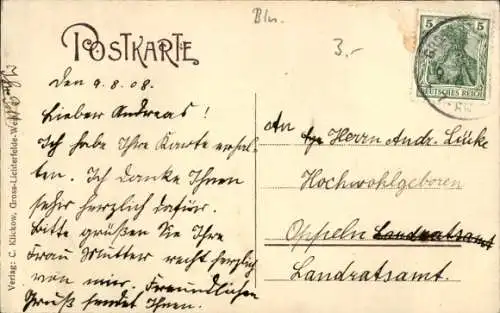 Bln.
POSTKARTE
3.-
5 5
DEUTSCHES REICH
den 9.8.08.
Lieber Andreas!
Ich habe Ihre Karte erhal-
ten. Ich danke Ihnen
sehr herzlich dafür.
Bitte grüßen Sie Ihre
Frau Mutter recht herzlich
von mir. Freundlichen
Gruß sendet Ihnen.
An
Herrn Andr. Lücke
Hochwohlgeboren
Oppeln Landratsamt
Landratsamt.
Verlag: C. Klickow, Gross-Lichterfelde-We